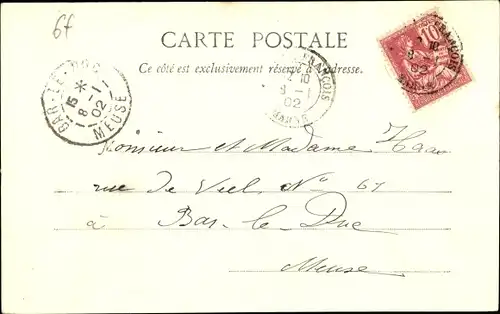 6f
CARTE POSTALE
Ce côté est exclusivement réservé à l'adresse.
BAR-LE-DUC
15 *
8 -1
02
MEUSE
FRANÇOIS
10
8 -1
02
MARNE
10
FRANÇOIS
10
02
MARNE
Monsieur et Madame Haan
rue de Veel, No 67
à Bar-le-Duc
Meuse